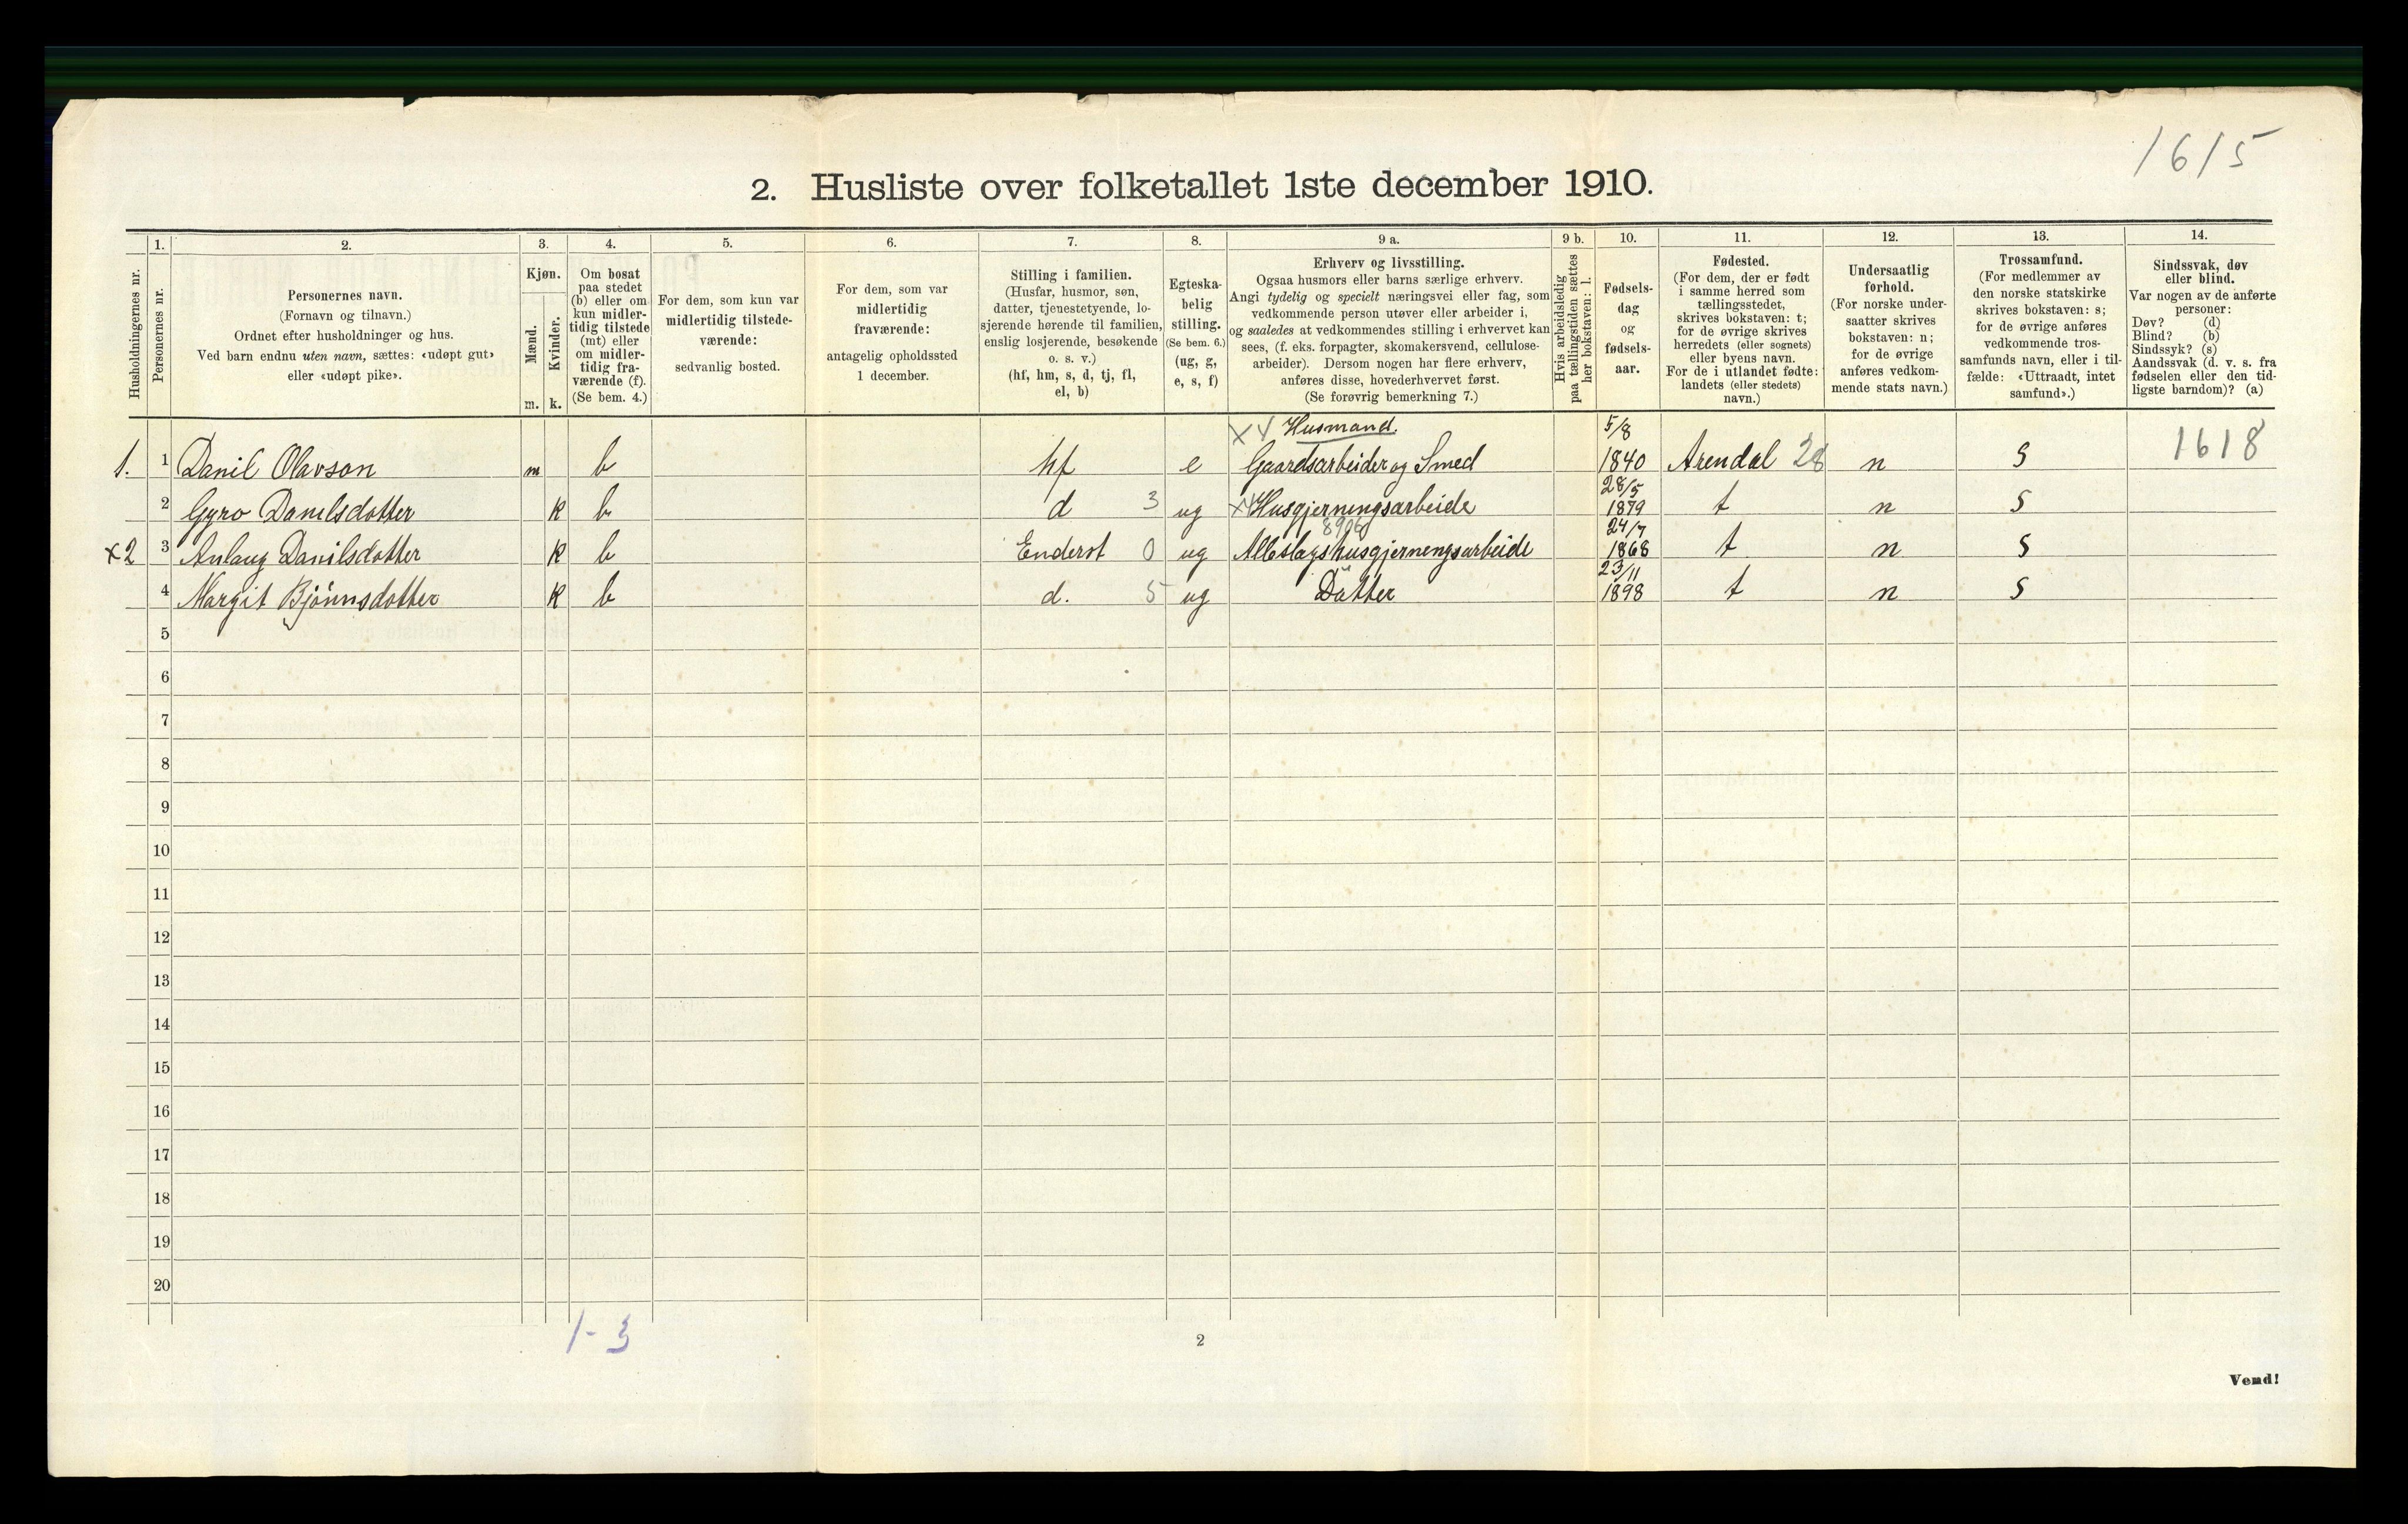 1615
2. Husliste over folketallet 1ste december 1910.
Husholdningernes nr.
1.
Personernes nr.
2.
Personernes navn.
(Fornavn og tilnavn.)
Ordnet efter husholdninger og hus.
Ved barn endnu uten navn, sættes: «udøpt gut»
eller «udøpt pike».
3.
Kjøn.
Mænd.
Kvinder.
m. k.
4.
Om bosat
paa stedet
(b) eller om
kun midler-
tidig tilstede
(mt) eller
om midler-
tidig fra-
værende (f).
(Se bem. 4.)
5.
For dem, som kun var
midlertidig tilstede-
værende:
sedvanlig bosted.
6.
For dem, som var
midlertidig
fraværende:
antagelig opholdssted
1 december.
7.
Stilling i familien.
(Husfar, husmor, søn,
datter, tjenestetyende, lo-
sjerende hørende til familien,
enslig losjerende, besøkende
o. s. v.)
(hf, hm, s, d, tj, fl,
el, b)
8.
Egteska-
belig
stilling.
(Se bem. 6.)
(ug, g,
e, s, f)
9 a.
Erhverv og livsstilling.
Ogsaa husmors eller barns særlige erhverv.
Angi tydelig og specielt næringsvei eller fag, som
vedkommende person utøver eller arbeider i,
og saaledes at vedkommendes stilling i erhvervet kan
sees, (f. eks. forpagter, skomakersvend, cellulose-
arbeider). Dersom nogen har flere erhverv,
anføres disse, hovederhvervet først.
(Se forøvrig bemerkning 7.)
9 b.
Hvis arbeidsledig
paa tællingstiden sættes
her bokstaven: l.
10.
Fødsels-
dag
og
fødsels-
aar.
11.
Fødested.
(For dem, der er født
i samme herred som
tællingsstedet,
skrives bokstaven: t;
for de øvrige skrives
herredets (eller sognets)
eller byens navn.
For de i utlandet fødte:
landets (eller stedets)
navn.)
12.
Undersaatlig
forhold.
(For norske under-
saatter skrives
bokstaven: n;
for de øvrige
anføres vedkom-
mende stats navn.)
13.
Trossamfund.
(For medlemmer av
den norske statskirke
skrives bokstaven: s;
for de øvrige anføres
vedkommende tros-
samfunds navn, eller i til-
fælde: «Uttraadt, intet
samfund».)
14.
Sindssvak, døv
eller blind.
Var nogen av de anførte
personer:
Døv? (d)
Blind? (b)
Sindssyk? (s)
Aandssvak (d. v. s. fra
fødselen eller den tid-
ligste barndom)? (a)
X4 Husmand. 5/8
1. 1 Danil Olavson m b hf e Gaardsarbeider og Smed 1840 Arendal 28 n S 1618
28/5
2 Gyro Danilsdotter k b d 3 ug X4 Husgjerningsarbeide 1879 t n S
8906 24/7
x2 3 Anlaug Danilsdotter k b Enderst 0 ug Alleslags husgjerningsarbeide 1868 t n S
23/11
4 Margit Bjönnsdotter k b d. 5 ug Datter 1898 t n S
5
6
7
8
9
10
11
12
13
14
15
16
17
18
19
20
1-3
2
Vend!